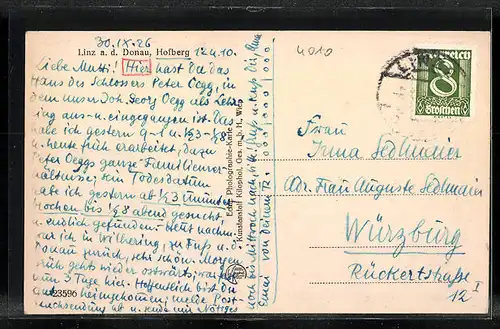 30. IX. 26
Linz a. d. Donau, Hofberg
12 u. 10.
4010
Liebe Mutti! Hier hast Du das
Haus des Schlossers Peter Oegg, in
dem unser Joh. Georg Oegg als Lehr
ling aus- u. eingegangen ist. Das
habe ich gestern 9-1 u. ½3-½8
u. heute früh erarbeitet, dazu
Peter Oeggs ganze Familienver-
hältnisse; sein Todesdatum
habe ich gestern ab ½3 ununter
brochen bis ½8 abend gesucht,
u. endlich gefunden. Heut nachm.
war ich in Wilhering, zu Fuß a. d.
Donau zurück, sehr schön. Morgen
früh geht's wieder ostwärts, war hier
nun 3 Tage hier. Hoffentlich bist du
gut heimgekommen; melde Post-
nachsendung ab u. sende nur Nötiges
noch bis Mittwoch nach.
Echte Photographie-Karte
Kunstanstalt Kilophot, Ges. m. b. H., Wien
23596
Österreich
8
Groschen
LINZ
Frau
Irma Sedlmaier
Adr. Frau Auguste Sedlmaier
Würzburg
Rückertstraße
12 I